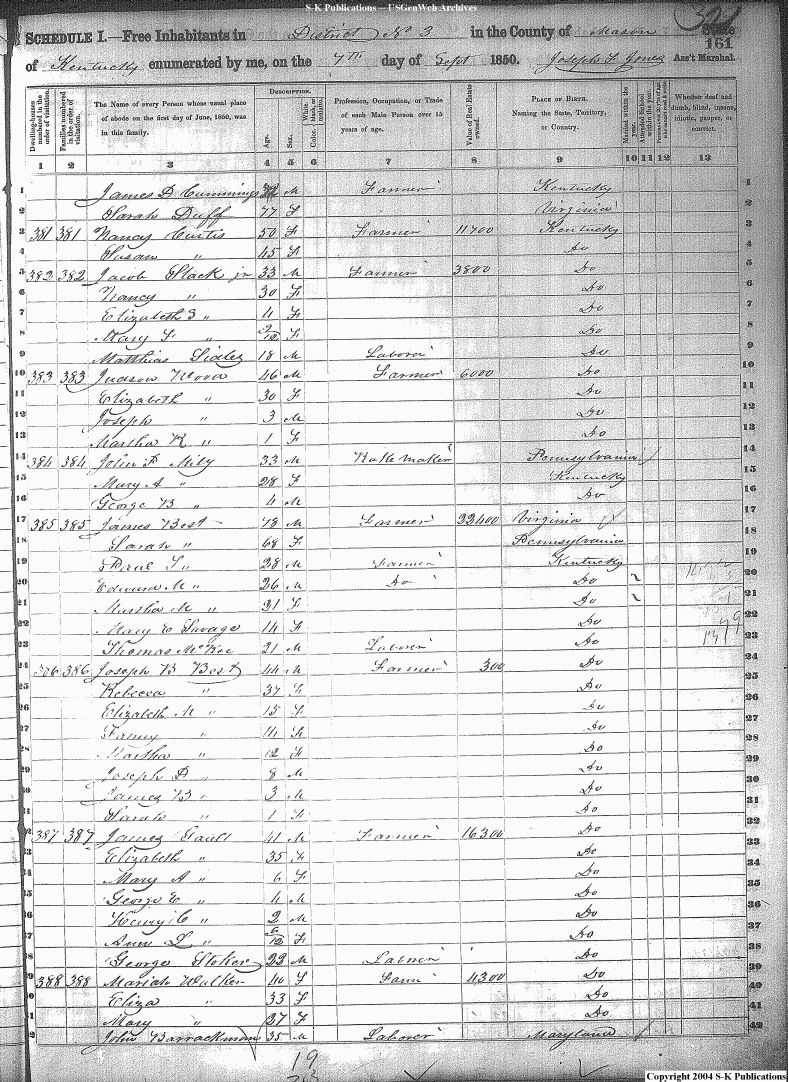 S-K Publications – USGenWeb Archives
161
SCHEDULE I.—Free Inhabitants in District No 3 in the County of Mason State
of Kentucky enumerated by me, on the 7th day of Sept 1850. Joseph F. Jones Ass't Marshal.
Dwelling-houses numbered in the order of visitation.
Families numbered in the order of visitation.
The Name of every Person whose usual place of abode on the first day of June, 1850, was in this family.
DESCRIPTION.
Age.
Sex.
Profession, Occupation, or Trade of each Male Person over 15 years of age.
Value of Real Estate owned.
PLACE OF BIRTH.
Naming the State, Territory, or Country.
Married within the year.
Attended School within the year.
Whether deaf and dumb, blind, insane, idiotic, pauper, or convict.
1 2 3 4 5 6 7 8 9 10 11 12 13
1 James D Cummings M Farmer Kentucky 1
2 Sarah Duff 77 F Virginia 2
3 381 381 Nancy Curtis 50 F Farmer 11700 Kentucky 3
4 Susan " 45 F Do 4
5 382 382 Jacob Slack jr 33 M Farmer 3800 Do 5
6 Nancy " 30 F Do 6
7 Elizabeth " 4 F Do 7
8 Mary F " /12 F Do 8
9 Matthias 18 M Laborer Do 9
10 383 383 Judson 46 M Farmer 6000 Do 10
11 Elizabeth " 30 F Do 11
12 Joseph " 3 M Do 12
13 Martha " 1 F Do 13
14 384 384 John 33 M maker Pennsylvania 14
15 Mary A " 28 F Kentucky 15
16 George B " 4 M Do 16
17 385 385 James Best 78 M Farmer 22400 Virginia 17
18 Sarah " 68 F Pennsylvania 18
19 " 28 M Farmer Kentucky 19
20 Edward M " 26 M Do Do 20
21 Martha M " 21 F Do 21
22 Mary E Savage 14 F Do 22
23 Thomas McKee 21 M Laborer Do 23
24 386 386 Joseph B Best 44 M Farmer 300 Do 24
25 Rebecca " 37 F Do 25
26 Elizabeth M " 15 F Do 26
27 Fanny " 14 F Do 27
28 Martha " 12 F Do 28
29 Joseph D " 8 M Do 29
30 James B " 3 M Do 30
31 Sarah " 1 F Do 31
32 387 387 James Gault 41 M Farmer 16300 Do 32
33 Elizabeth " 35 F Do 33
34 Mary A " 6 F Do 34
35 George E " 4 M Do 35
36 Henry C " 2 M Do 36
37 Ann L " 6/12 F Do 37
38 George Stoker 22 M Laborer Do 38
39 388 388 Mariah Walker 40 F Farm 4300 Do 39
40 Eliza " 33 F Do 40
41 Mary " 27 F Do 41
42 John Barrackman 35 M Laborer Maryland 42
19
23
Copyright 2004 S-K Publications